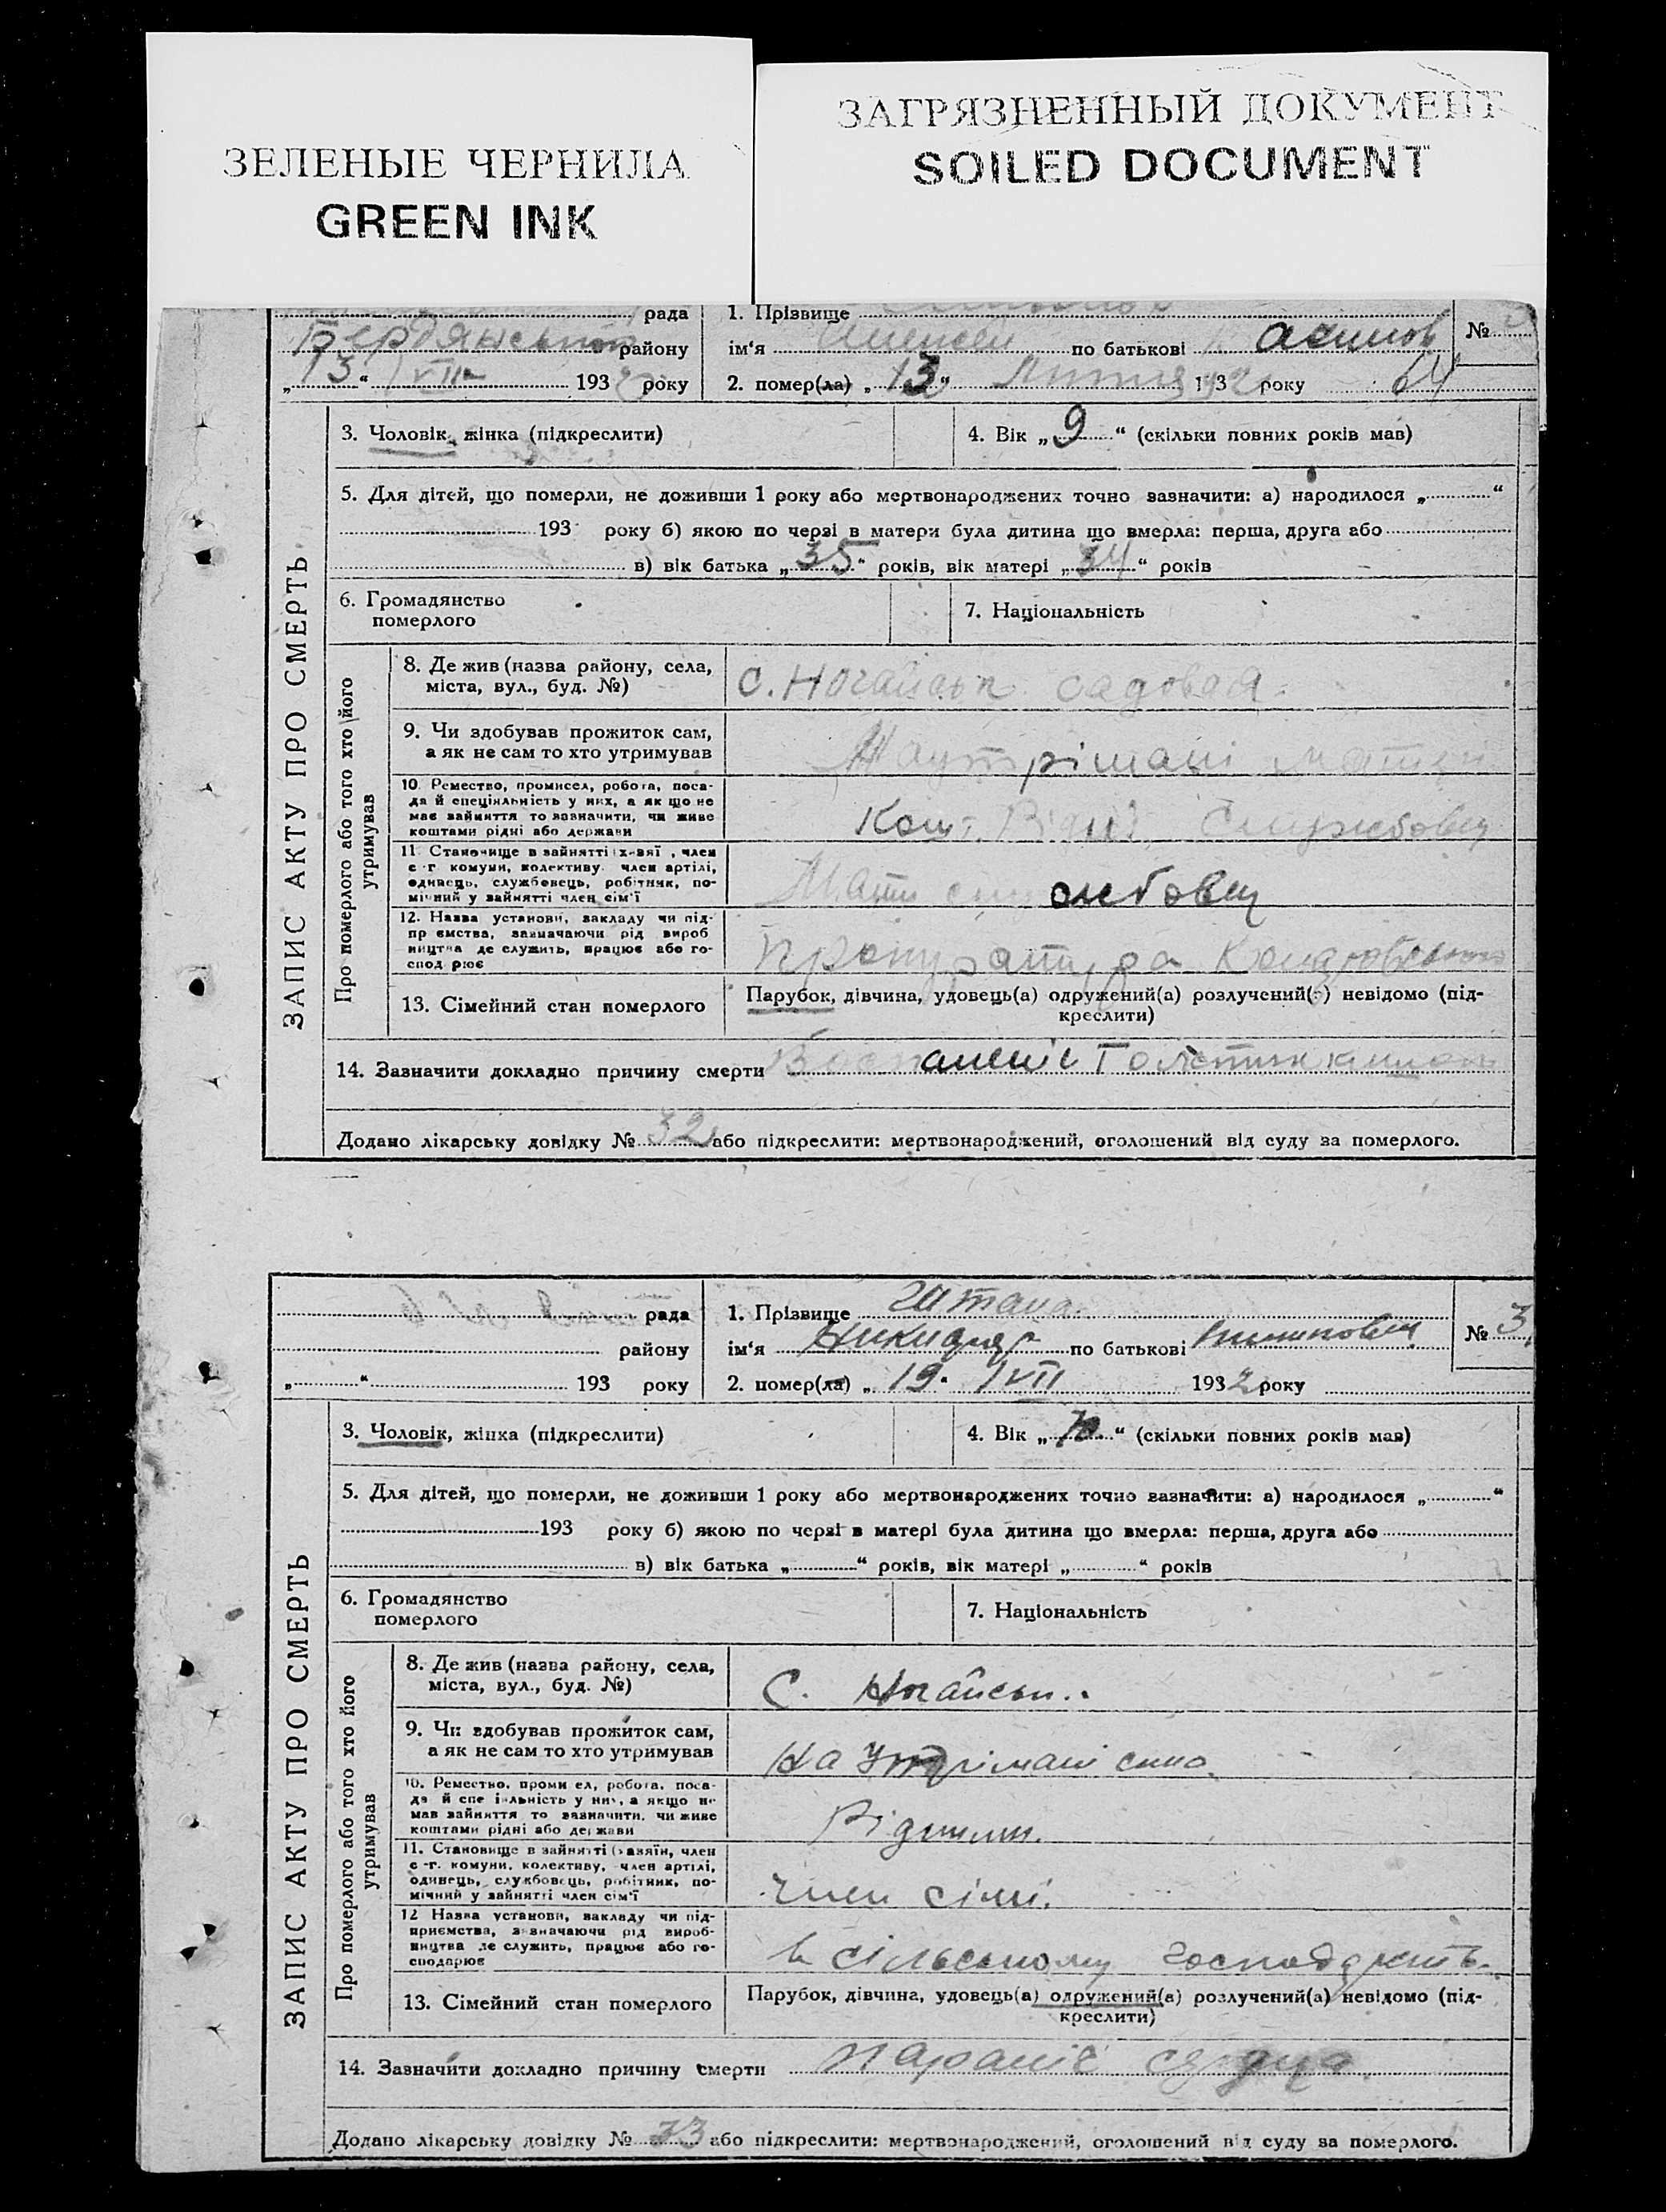 ЗЕЛЕНЫЕ ЧЕРНИЛА
GREEN INK
ЗАГРЯЗНЕННЫЙ ДОКУМЕНТ
SOILED DOCUMENT
рада
Бердянський району
„13“ VII 1932 року
1. Прізвище
ім‘я Алексей по батькові
№
2. помер(ла) „13“ Липня 1932 року
ЗАПИС АКТУ ПРО СМЕРТЬ
3. Чоловік, жінка (підкреслити)
4. Вік „9“ (скільки повних років мав)
5. Для дітей, що померли, не доживши 1 року або мертвонароджених точно зазначити: а) народилося „ “
193 року б) якою по черзі в матери була дитина що вмерла: перша, друга або
в) вік батька „35“ років, вік матері „34“ років
6. Громадянство
померлого
7. Національність
Про померлого або того хто його
утримував
8. Де жив (назва району, села,
міста, вул., буд. №)
С. Ногайськ садовая.
9. Чи здобував прожиток сам,
а як не сам то хто утримував
На утрімані матері
10. Ремество, промисел, робота, поса-
да й специяльність у них, а як що не
має займиття то зазначити, чи живе
коштами рідні або держави
Кошт. Рідні
11. Становище в зайнятті (х-взяї , член
с -г комуни, колективу. член артілі,
одинець, службовець, робітник, по-
мічний у зайнятті член сім‘ї
Мати службовец
12. Назва установи, закладу чи під-
пр ємства, зазначаючи рід вироб
ництва де служить, працює або го-
спод рює
Прокуратура
13. Сімейний стан померлого
Парубок, дівчина, удовець(а) одружений(а) розлучений(а) невідомо (під-
креслити)
14. Зазначити докладно причину смерти
Воспаленіє
Додано лікарську довідку № 32 або підкреслити: мертвонароджений, оголошений від суду за померлого.
рада
району
„ “ 193 року
1. Прізвище Штана
ім‘я по батькові
№ 3
2. помер(ла) „19. VII 1932 року
ЗАПИС АКТУ ПРО СМЕРТЬ
3. Чоловік, жінка (підкреслити)
4. Вік „70.“ (скільки повних років мав)
5. Для дітей, що померли, не доживши 1 року або мертвонароджених точно зазначити: а) народилося „ “
193 року б) якою по черзі в матері була дитина що вмерла: перша, друга або
в) вік батька „ “ років, вік матері „ “ років
6. Громадянство
померлого
7. Національність
Про померлого або того хто його
утримував
8. Де жив (назва району, села,
міста, вул., буд. №)
С. Ногайськ.
9. Чи здобував прожиток сам,
а як не сам то хто утримував
На утрімані сина.
10. Ремество, проми ел, робота, поса-
да й спе іяльність у них, а якщо не
мав зайняття то зазначити, чи живе
коштами рідні або держави
11. Становище в зайнятті (хазяїн, член
с -г. комуни, колективу, член артілі,
одинець, службовець, робітник, по-
мічний у зайнятті член сім‘ї
член сімі.
12 Назва установи, закладу чи під-
приємства, зазначаючи рід вироб-
ництва де служить, працює або го-
сподарює
в сільському
13. Сімейний стан померлого
Парубок, дівчина, удовець(а) одружений(а) розлучений(а) невідомо (під-
креслити)
14. Зазначити докладно причину смерти
параліč сердца
Додано лікарську довідку № 33 або підкреслити: мертвонароджений, оголошений від суду за померлого.